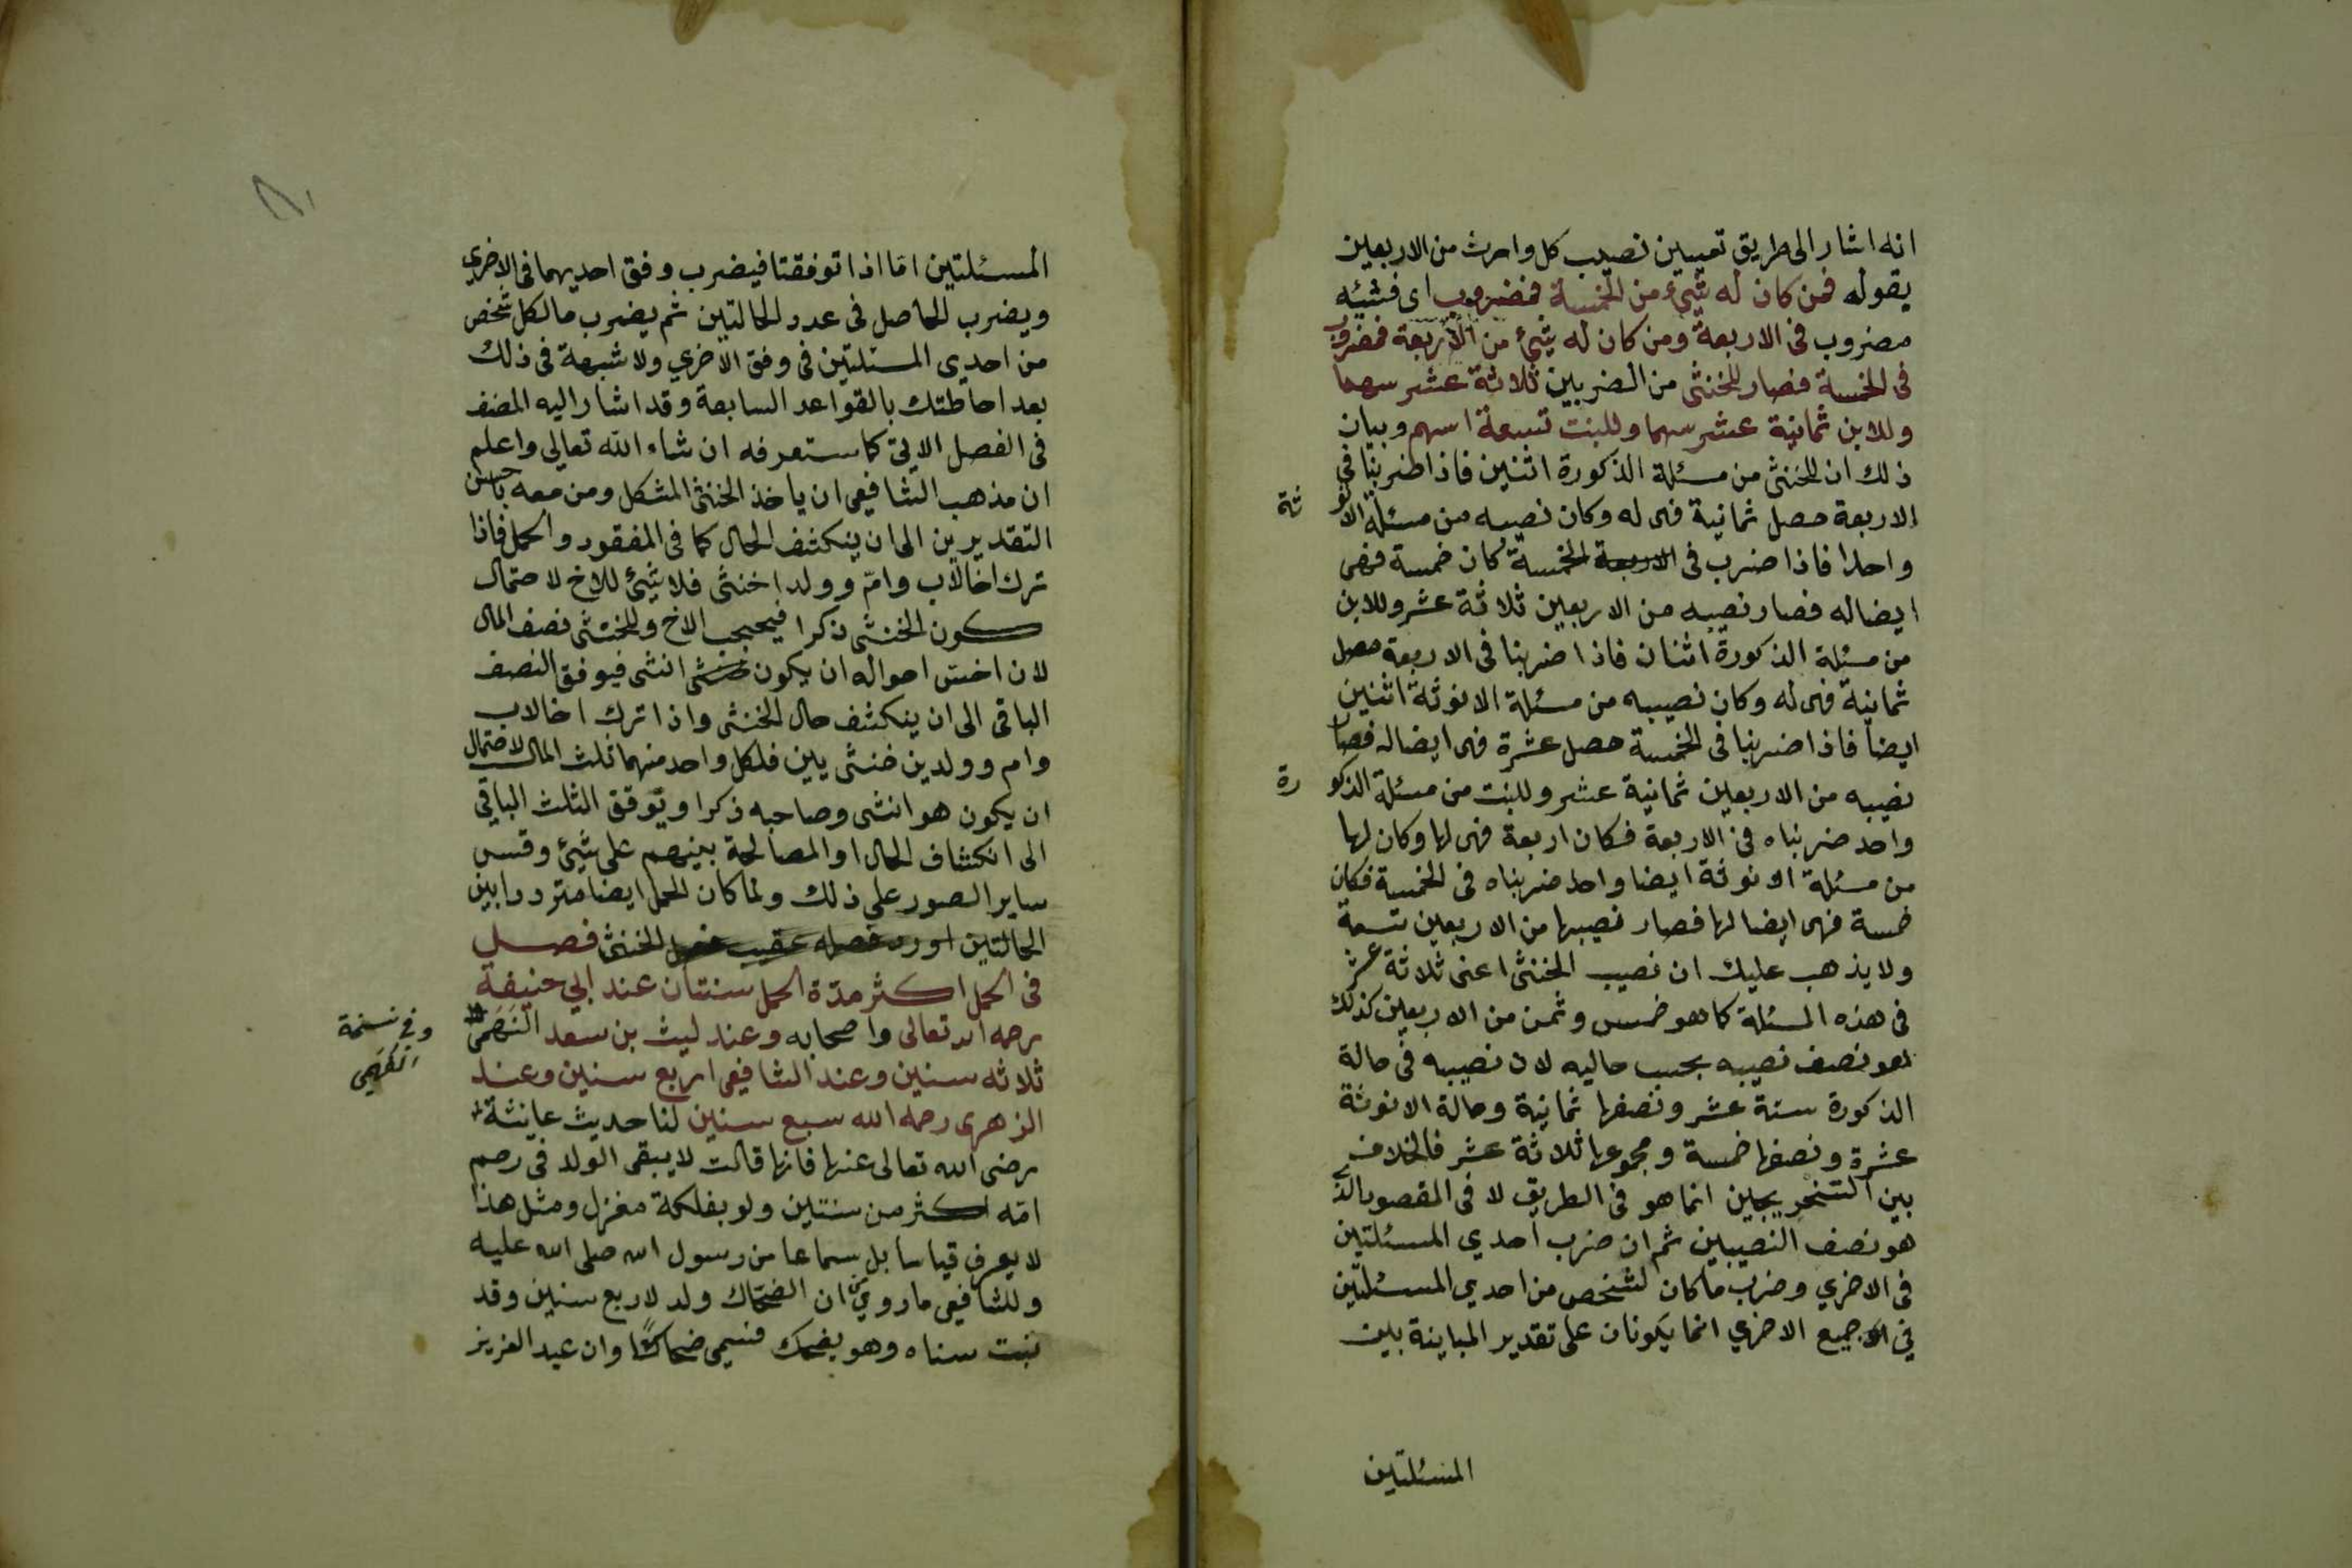 انه اشار الى طريق تعيين نصيب كل وارث من الاربعين
بقوله فمن كان له شيئ من الخمسة فمضروب اى فشيئه
مضروب فى الاربعة ومن كان له شيئ من الاربعة فمضروب
فى الخمسة فصار للخنثى من الضربين ثلاثة عشر سهما
وللابن ثمانية عشر سهما وللبنت تسعة اسهم وبيان
ذلك ان للخنثى من مسئلة الذكورة اثنين فاذا ضربنا فى
الاربعة حصل ثمانية فهى له وكان نصيبه من مسئلة الانوثة
واحدا فاذا ضرب فى الاربعة الخمسة كان خمسة فهى
ايضا له فصار نصيبه من الاربعين ثلاثة عشر وللابن
من مسئلة الذكورة اثنان فاذا ضربنا فى الاربعة حصل
ثمانية فهى له وكان نصيبه من مسئلة الانوثة اثنين
ايضا فاذا ضربنا فى الخمسة حصل عشرة فهى ايضا له فصار
نصيبه من الاربعين ثمانية عشر وللبنت من مسئلة الذكورة
واحد ضربناه فى الاربعة فكان اربعة فهى لها وكان لها
من مسئلة الانوثة ايضا واحد ضربناه فى الخمسة فكان
خمسة فهى ايضا لها فصار نصيبها من الاربعين تسعة
ولا يذهب عليك ان نصيب الخنثى اعنى ثلاثة عشر
فى هذه المسئلة كما هو خمس وثمن من الاربعين كذلك
هو نصف نصيبه بحسب حاليه لان نصيبه فى حالة
الذكورة ستة عشر ونصفها ثمانية وحالة الانوثة
عشرة ونصفها خمسة ومجموعها ثلاثة عشر فالخلاف
بين التخريجين انما هو فى الطريق لا فى المقصود الذى
هو نصف النصيبين ثم ان ضرب احدي المسئلتين
فى الاخري وضرب ما كان لشخص من احدي المسئلتين
في جميع الاخري انما يكونان على تقدير المباينة بين
المسئلتين
المسئلتين امّا اذا توفقتا فيضرب وفق احديهما فى الاخري
ويضرب الحاصل فى عدد الحالتين ثم يضرب ما لكل شخص
من احدي المسئلتين فى وفق الاخري ولا شبهة فى ذلك
بعد احاطتك بالقواعد السابعة وقد اشار اليه المصنف
فى الفصل الاتى كما ستعرفه ان شاء الله تعالى واعلم
ان مذهب الشافيعى ان ياخذ الخنثى المشكل ومن معه باخس
التقديرين الى ان ينكشف الحال كما فى المفقود والحمل فاذا
ترك اخا لاب وامّ وولدا خنثى فلا شيئ للاخ لاحتمال
كون الخنثى ذكرا فيحجب الاخ وللخنثى نصف المال
لان اخس احواله ان يكون خنثى انثى فيوفق النصف
الباقى الى ان ينكشف حال الخنثى واذا ترك اخا لاب
وام وولدين خنثى يين فلكل واحد منهما ثلث المال لاحتمال
ان يكون هو انثى وصاحبه ذكرا ويوقق الثلث الباقي
الى انكشاف الحال او المصالحة بينهم على شيئ وقس
ساير الصور على ذلك ولما كان الحمل ايضا مترددا بين
الحالتين اورد فصله عقيب فصل الخنثى فصل
فى الحمل اكثر مدّة الحمل سنتان عند ابي حنيفة
رحمه الله تعالى واصحابه وعند ليث بن سعد النهَمى
وفي نسخة
الفهمي
ثلاثه سنين وعند الشافيعى اربع سنين وعند
الزهرى رحمه الله سبع سنين لنا حديث عايشة
رضى الله تعالى عنها فانها قالت لا يبقى الولد فى رحم
امّه اكثر من سنتين ولو بفلكة مغزل ومثل هذا
لا يعرف قياسا بل سماعا من رسول الله صلى الله عليه
وللشافيعى ما روي ان الضحّاك ولد لاربع سنين وقد
نبت سناه وهو يضحك فسمى ضحاكًا وان عبد العزيز